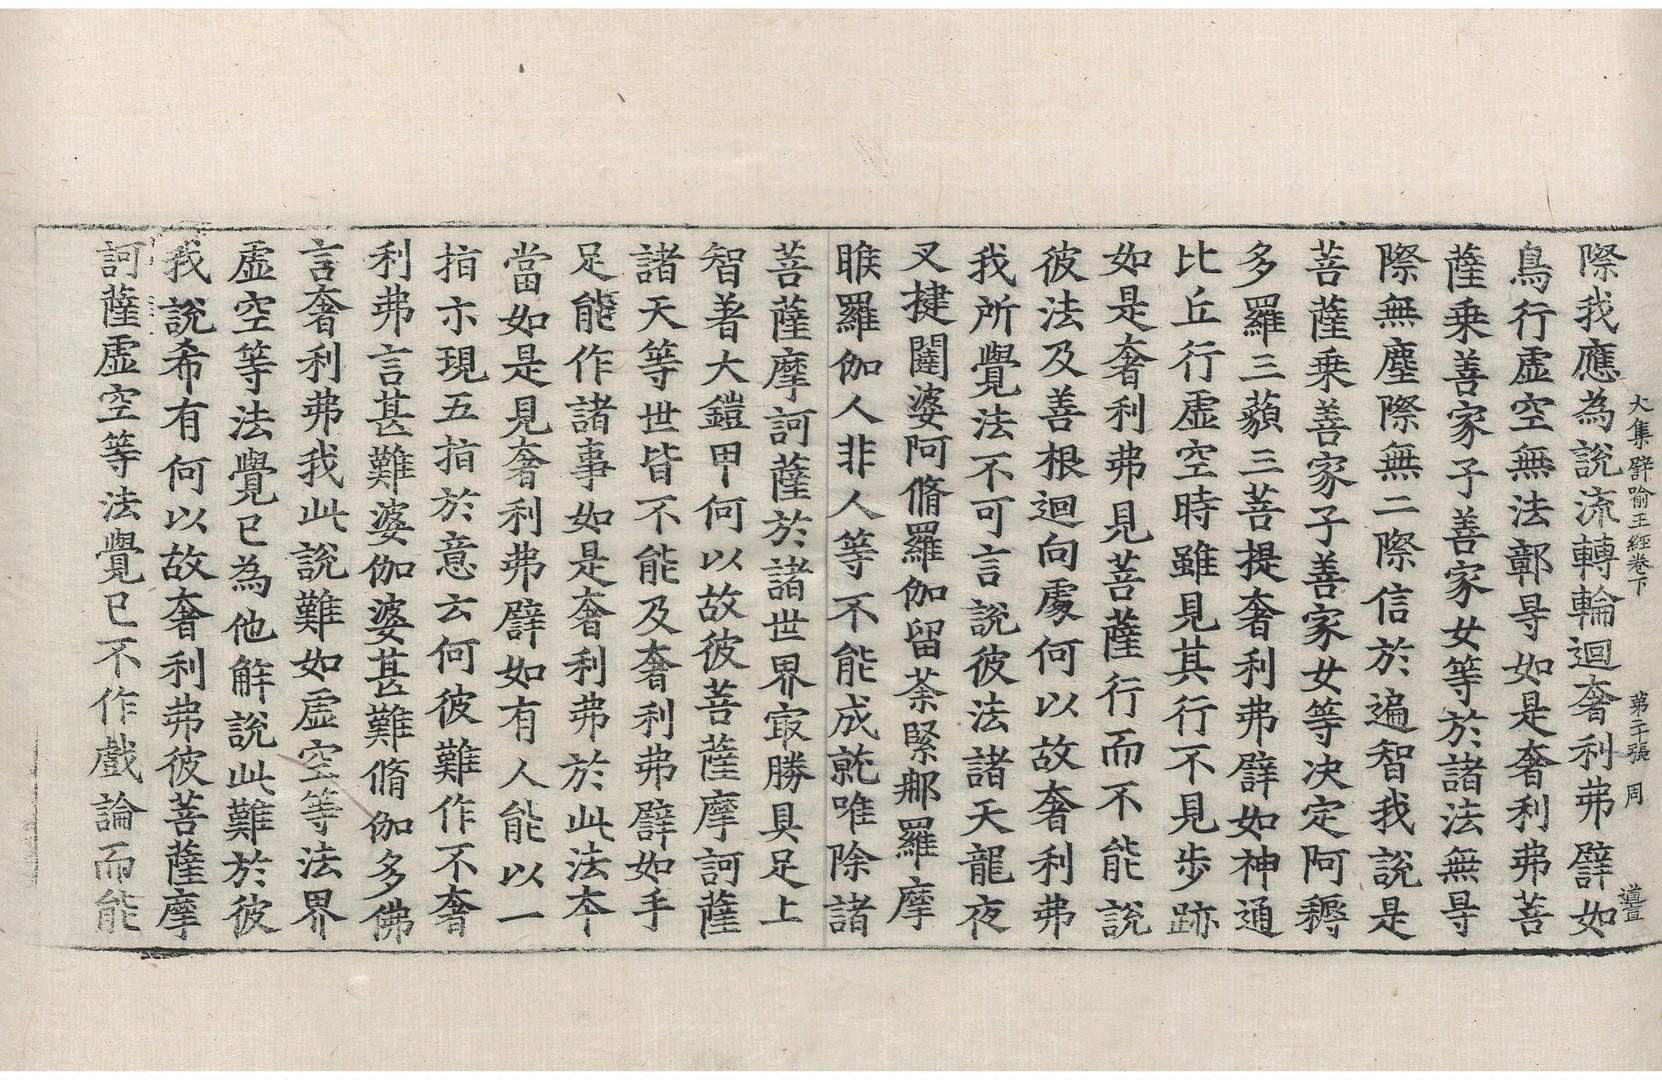 大集譬喻王經卷下　第二十張　周　道宣
際我應為說流轉輪迴奢利弗譬如
鳥行虛空無法鄣㝵如是奢利弗菩
薩乘善家子善家女等於諸法無㝵
際無塵際無二際信於遍智我說是
菩薩乘善家子善家女等決定阿耨
多羅三藐三菩提奢利弗譬如神通
比丘行虛空時雖見其行不見步跡
如是奢利弗見菩薩行而不能說
彼法及善根迴向處何以故奢利弗
我所覺法不可言說彼法諸天龍夜
叉揵闥婆阿脩羅伽留荼緊那羅摩
睺羅伽人非人等不能成就唯除諸
菩薩摩訶薩於諸世界㝡勝具足上
智著大鎧甲何以故彼菩薩摩訶薩
諸天等世皆不能及奢利弗譬如手
足能作諸事如是奢利弗於此法夲
當如是見奢利弗譬如有人能以一
指示現五指於意云何彼難作不奢
利弗言甚難婆伽婆甚難脩伽多佛
言奢利弗我此說難如虛空等法界
虛空等法覺已為他解說此難於彼
我說希有何以故奢利弗彼菩薩摩
訶薩虛空等法覺已不作戲論而能